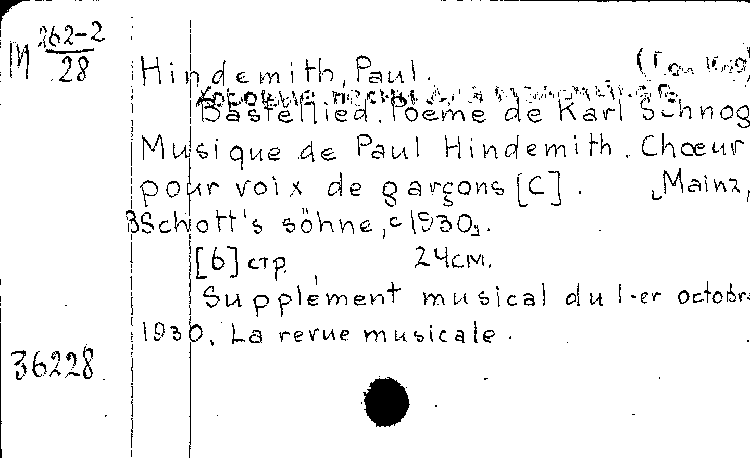 М 262-2
28
Hindemith, Paul.
Хоровые песни
Bastellied. Poème de Karl Schnog
Musique de Paul Hindemith. Chœur
pour voix de garçons [C]. Mainz,
BSchott's söhne, c1930.
[6] стр. 24см.
Supplément musical du 1-er octobre
1930. La revue musicale.
36228